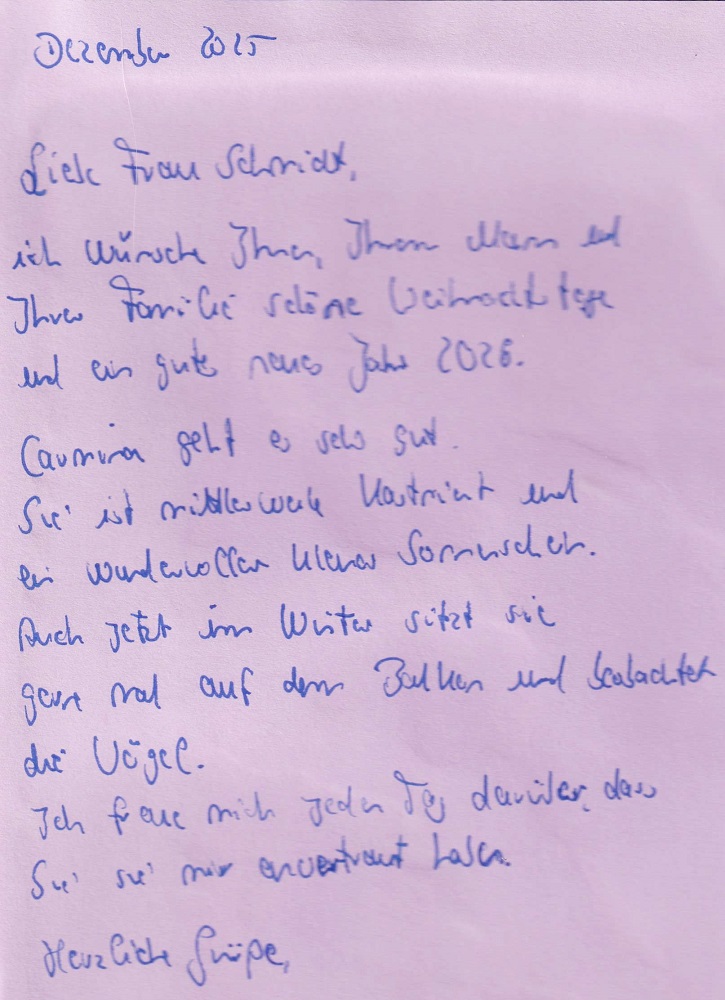 Dezember 2025
Liebe Frau Schmidt,
ich wünsche Ihnen, Ihrem Mann und
Ihrer Familie schöne Weihnachtstage
und ein gutes neues Jahr 2026.
geht es sehr gut.
Sie ist mittlerweile kastriert und
ein wundervoller kleiner Sonnenschein.
Auch jetzt im Winter sitzt sie
gerne mal auf dem Balkon und beobachtet
die Vögel.
Ich freue mich jeden Tag darüber, dass
Sie sie mir anvertraut haben.
Herzliche Grüße,